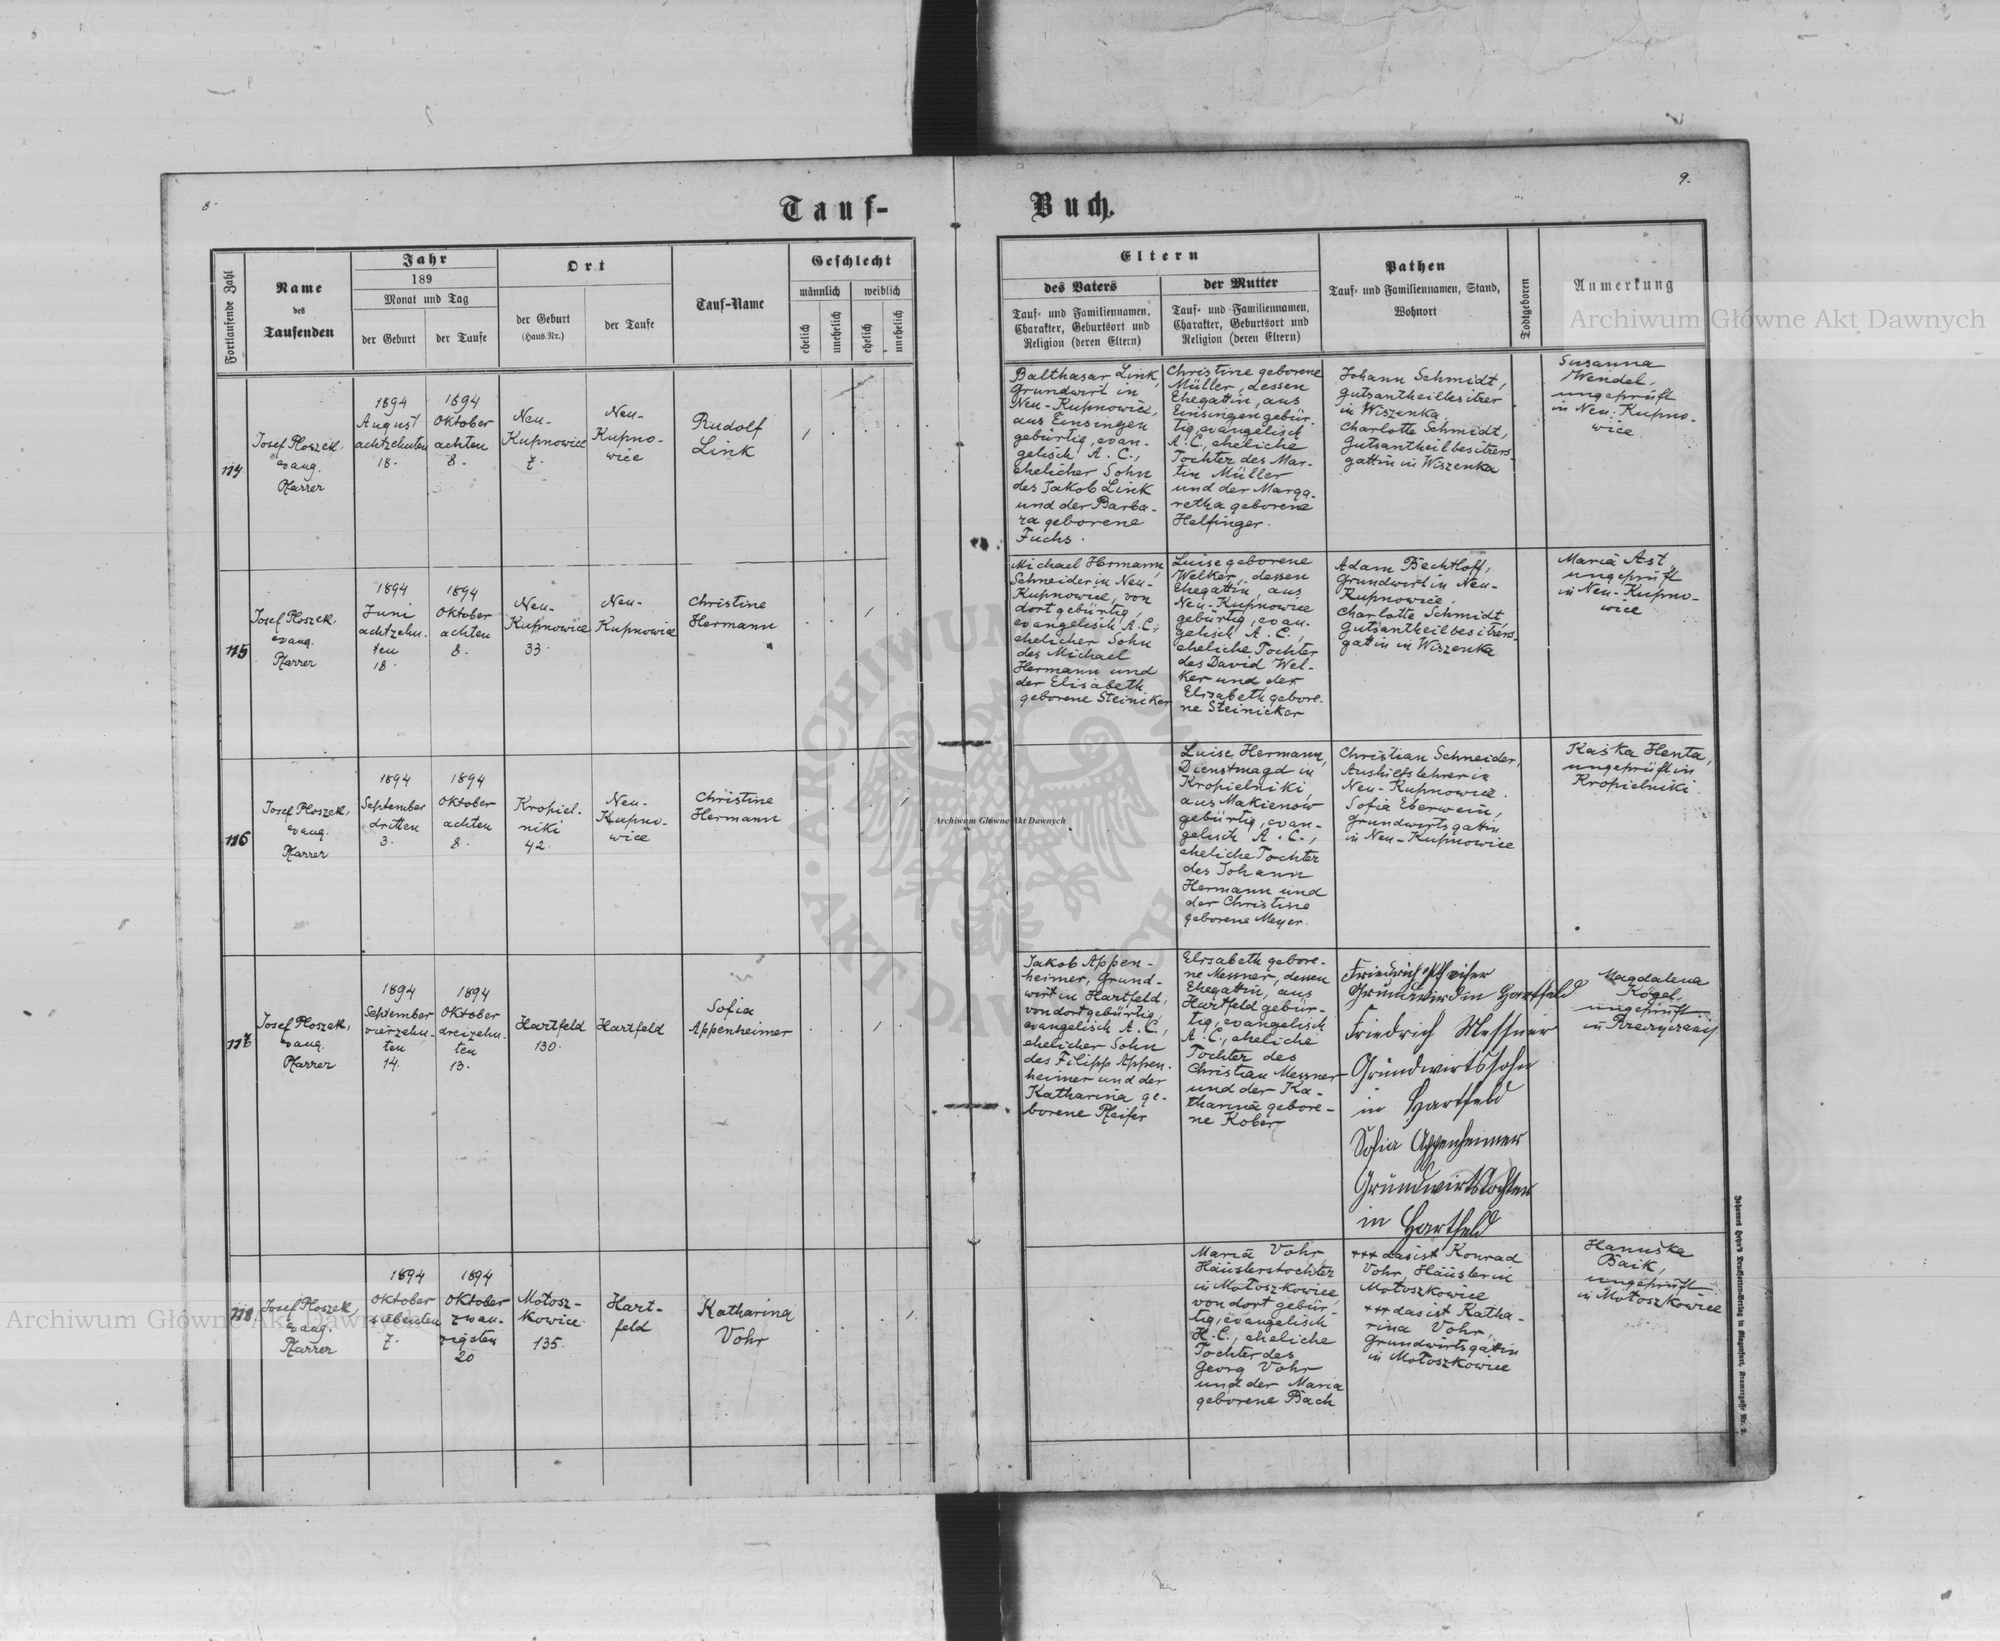 8.
9.
Tauf-
Buch.
Fortlaufende Zahl
Name
des
Taufenden
Jahr
189
Monat und Tag
der Geburt
der Taufe
Ort
der Geburt
(Haus-Nr.)
der Taufe
Tauf-Name
Geschlecht
männlich
weiblich
ehelich
unehelich
ehelich
unehelich
Eltern
des Vaters
Tauf- und Familiennamen,
Charakter, Geburtsort und
Religion (deren Eltern)
der Mutter
Tauf- und Familiennamen,
Charakter, Geburtsort und
Religion (deren Eltern)
Pathen
Tauf- und Familiennamen, Stand,
Wohnort
Todtgeboren
Anmerkung
Archiwum Główne Akt Dawnych
114
Josef Ploszek,
evang.
Pfarrer
1894
August
achtzehnten
18.
1894
Oktober
achten
8.
Neu-
Kupnowice
7.
Neu-
Kupno-
wice
Rudolf
Link
Balthasar Link,
Grundwirt in
Neu-Kupnowice,
aus Einsingen
gebürtig, evan-
gelisch A. C.,
ehelicher Sohn
des Jakob Link
und der Barba-
ra geborene
Fuchs.
Christine geborene
Müller, dessen
Ehegattin, aus
Einsingen gebür-
tig, evangelisch
A. C., eheliche
Tochter des Mar-
tin Müller
und der Marga-
retha geborene
Helfinger.
Johann Schmidt,
Gutsantheilbesitzer
in Wiszenka
Charlotte Schmidt,
Gutsantheilbesitzers-
gattin in Wiszenka
Susanna
Wendel,
ungeprüft
in Neu-Kupno-
wice
115
Josef Ploszek,
evang.
Pfarrer
1894
Juni
achtzehn-
ten
18.
1894
Oktober
achten
8.
Neu-
Kupnowice
33.
Neu-
Kupnowice
Christine
Hermann
Michael Hermann,
Schneider in Neu-
Kupnowice, von
dort gebürtig,
evangelisch A. C.,
ehelicher Sohn
des Michael
Hermann und
der Elisabeth
geborene Steiniker
Luise geborene
Welker, dessen
Ehegattin, aus
Neu-Kupnowice
gebürtig, evan-
gelisch A. C.,
eheliche Tochter
des David Wel-
ker und der
Elisabeth gebore-
ne Steinicker
Adam Bechtloff,
Grundwirt in Neu-
Kupnowice.
Charlotte Schmidt,
Gutsantheilbesitzers-
gattin in Wiszenka
Maria Ast,
ungeprüft
in Neu-Kupno-
wice
116
Josef Ploszek,
evang.
Pfarrer
1894
September
dritten
3.
1894
Oktober
achten
8.
Kropiel-
niki
42.
Neu-
Kupno-
wice
Christine
Hermann
Luise Hermann,
Dienstmagd in
Kropielniki,
aus Makienow
gebürtig, evan-
gelisch A. C.,
eheliche Tochter
des Johann
Hermann und
der Christine
geborene Meyer.
Christian Schneider,
Aushilfslehrer in
Neu-Kupnowice.
Sofia Eberwein,
Grundwirtsgattin
in Neu-Kupnowice
Kaśka Henta,
ungeprüft in
Kropielniki.
Archiwum Główne Akt Dawnych
117
Josef Ploszek,
evang.
Pfarrer
1894
September
vierzehn-
ten
14.
1894
Oktober
dreizehn-
ten
13.
Hartfeld
130.
Hartfeld
Sofia
Appenheimer
Jakob Appen-
heimer, Grund-
wirt in Hartfeld,
von dort gebürtig,
evangelisch A. C.,
ehelicher Sohn
des Filipp Appen-
heimer und der
Katharina ge-
borene Pfeifer
Elisabeth gebore-
ne Messner, dessen
Ehegattin, aus
Hartfeld gebür-
tig, evangelisch
A. C., eheliche
Tochter des
Christian Messner
und der Ka-
tharina gebore-
ne Kober
Friedrich Pfeifer
Grundwird in Hartfeld
Friedrich Messner
Grundwirtssohn
in Hartfeld
Sofia Appenheimer
Grundwirtstochter
in Hartfeld
Magdalena
Kögel,
ungeprüft
in
118
Josef Ploszek,
evang.
Pfarrer
1894
Oktober
siebenten
7.
1894
Oktober
zwan-
zigsten
20
Mołosz-
kowice
135.
Hart-
feld
Katharina
Vohr
Maria Vohr
Häuslerstochter
in Mołoszkowice,
von dort gebür-
tig, evangelisch
H. C., eheliche
Tochter des
Georg Vohr
und der Maria
geborene Bach
+++ das ist Konrad
Vohr, Häusler in
Mołoszkowice
+++ das ist Katha-
rina Vohr,
Grundwirtsgattin
in Mołoszkowice
Hanuśka
Baik,
ungeprüft
in Mołoszkowice
Archiwum Główne Akt Dawnych